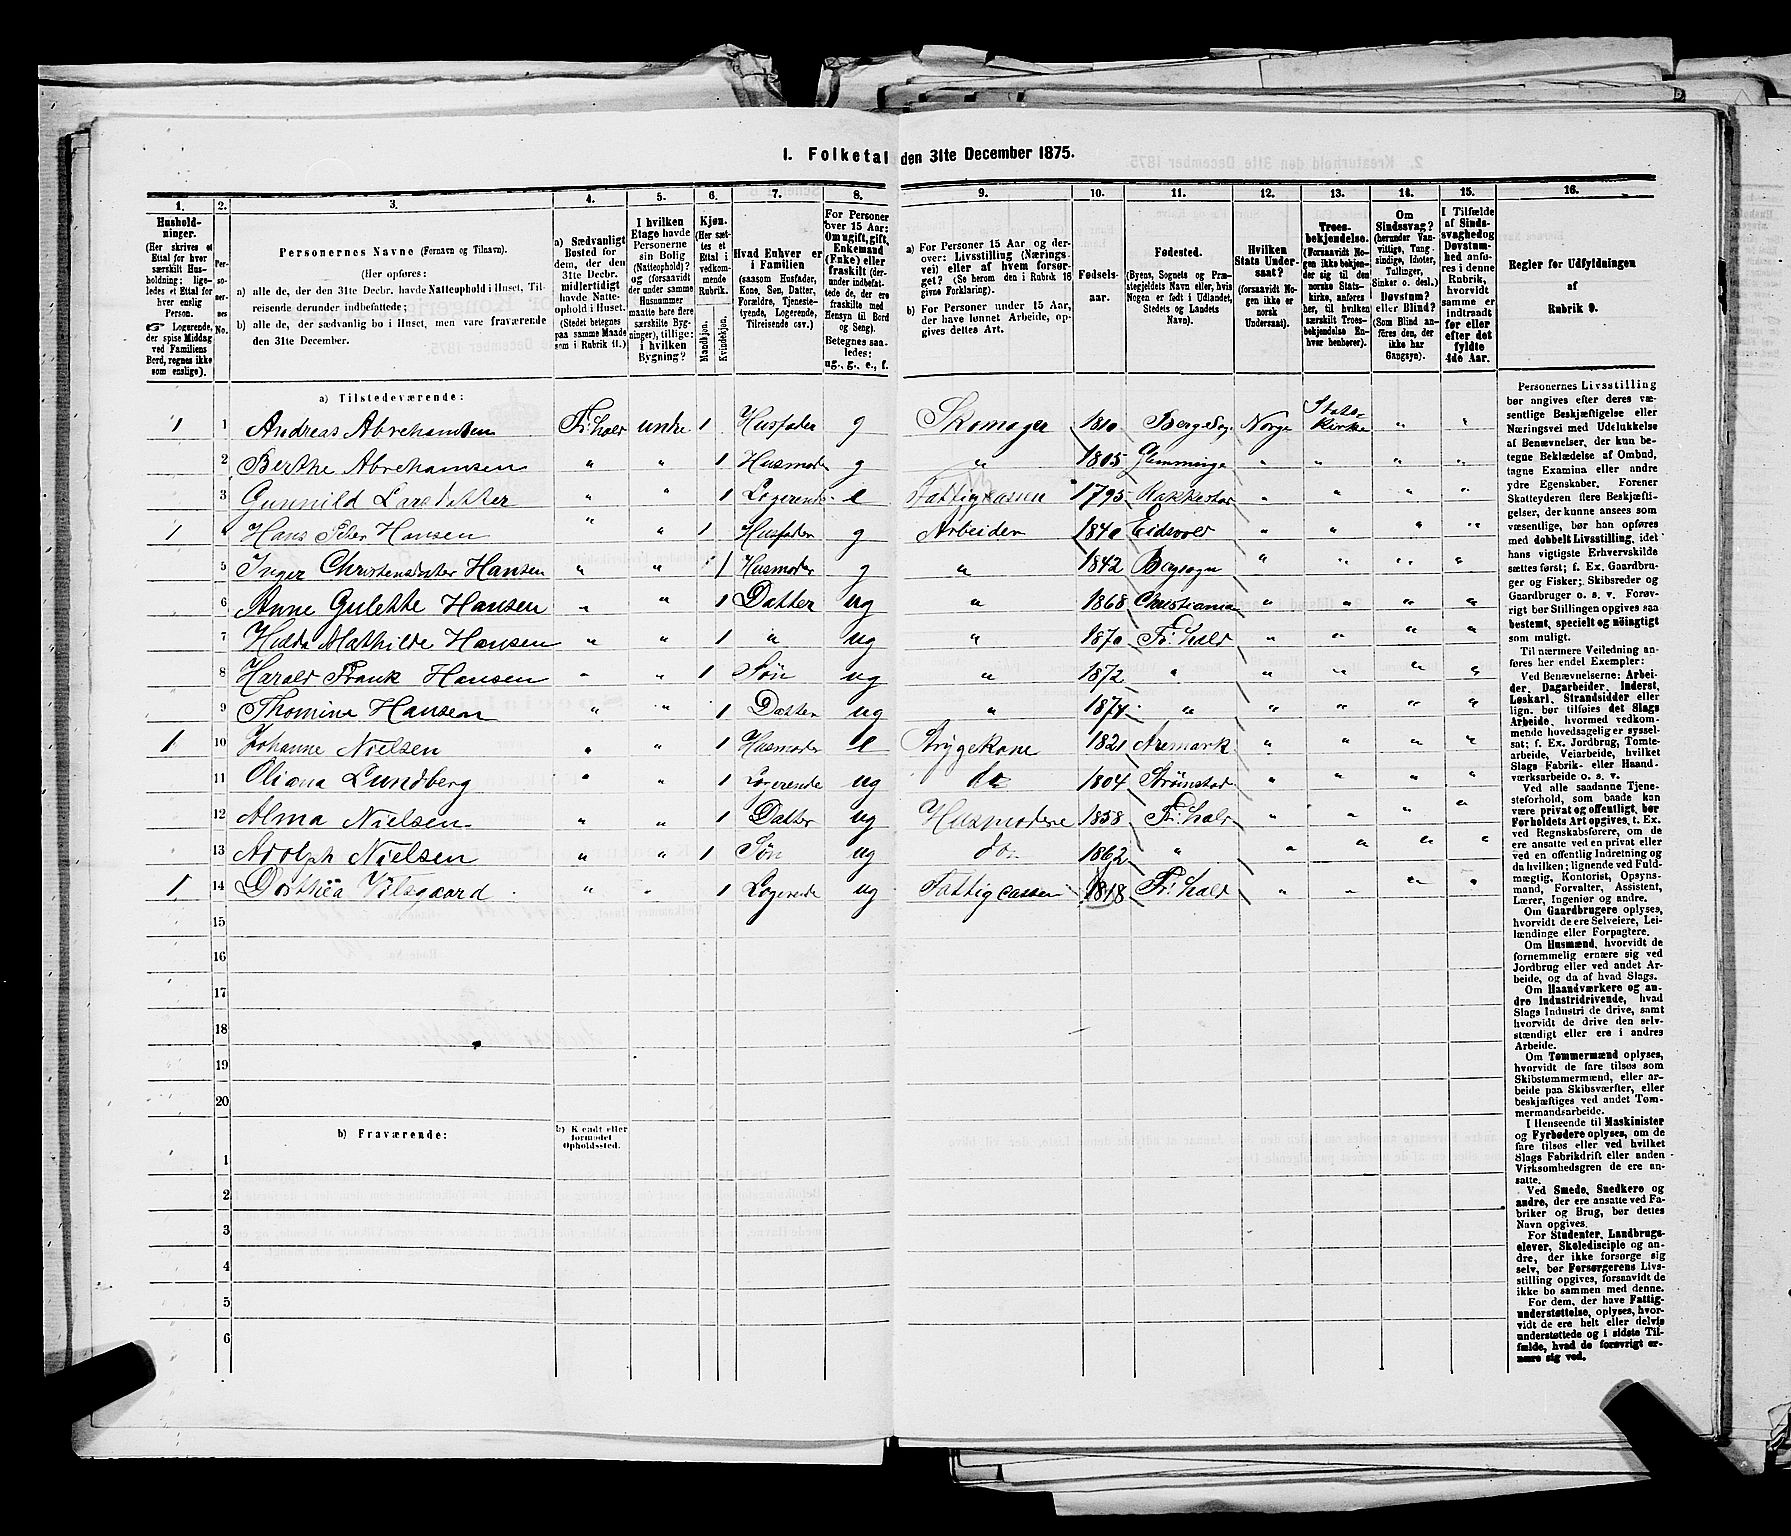 1. Folketal den 31te December 1875.
1. 2. 3. 4. 5. 6. 7. 8. 9. 10. 11. 12. 13. 14. 15. 16.
Hushold-
ninger.
(Her skrives et
Ettal for hver
særskilt Hus-
holdning; lige-
ledes et Ettal for
hver enslig
Person.
☞ Logerende,
der spise Middag
ved Familiens
Bord, regnes ikke
som enslige).
Per-
so-
ner-
nes
No.
Personernes Navne (Fornavn og Tilnavn).
(Her opføres:
a) alle de, der den 31te Decbr. havde Natteophold i Huset, Til-
reisende derunder indbefattede;
b) alle de, der sædvanlig bo i Huset, men vare fraværende
den 31te December.
a) Sædvanligt
Bosted for
dem, der den
31te Decbr.
midlertidigt
havde Natte-
ophold i Huset.
(Stedet betegnes
paa samme Maade
som i Rubrik 11.)
I hvilken
Etage havde
Personerne
sin Bolig
(Natteophold)?
og (forsaavidt
der under samme
Husnummer
maatte høre flere
særskilte Byg-
ninger), tillige:
i hvilken
Bygning?
Kjøn.
(Her sæt-
tes et
Ettal i
vedkom-
mende
Rubrik.
Mandkjøn.
Kvindekjøn.
Hvad Enhver er
i Familien
(saasom Husfader,
Kone, Søn, Datter,
Forældre, Tjeneste-
tyende, Logerende,
Tilreisende osv.)
For Personer
over 15 Aar:
Om ugift, gift,
Enkemand
(Enke) eller
fraskilt (der-
under indbefat-
tede de, der ere
fraskilte med
Hensyn til Bord
og Seng).
Betegnes saa-
ledes:
ug., g., e., f.
a) For Personer 15 Aar og der-
over: Livsstilling (Nærings-
vei) eller af hvem forsør-
get? (Se herom den i Rubrik 16
givne Forklaring).
b) For Personer under 15 Aar,
der have lønnet Arbeide, op-
gives dettes Art.
Fødsels-
aar.
Fødested.
(Byens, Sognets og Præ-
stegjeldets Navn eller, hvis
Nogen er født i Udlandet,
Stedets og Landets
Navn).
Hvilken
Stats Under-
saat?
(forsaavidt No-
gen ikke er
norsk
Undersaat).
Troes-
bekjendelse.
(Forsaavidt No-
gen ikke bekjen-
der sig til den
norske Stats-
kirke, anføres
her, til hvilken
særskilt Troes-
bekjendelse En-
hver henhører).
Om
Sindssvag?
(herunder Van-
vittige, Tung-
sindige, Idioter,
Tullinger,
Sinker o. desl.)
Døvstum?
eller Blind?
(Som Blind an-
føres den, der
ikke har
Gangsyn).
I Tilfælde
af Sinds-
svaghed og
Døvstum-
hed anfø-
res i denne
Rubrik,
hvorvidt
samme er
indtraadt
før eller
efter det
fyldte
4de Aar.
Regler for Udfyldningen
af
Rubrik 9.
a) Tilstedeværende:
1 1 Andreas Abrehamsen Fr: hald undre 1 Husfader g Skomager 1810 Berg Sog Norge Stats-
Kirke " "
2 Berthe Abrehamsen " " 1 Husmoder g " 1805 Glemminge " " " "
3 Gunnild Larsdatter " " 1 Logerende e Fattigkassen 1795 Rakkestad " " " "
1 4 Hans Peter Hansen " " 1 Husfader g Arbeider 1840 Eidsvold " " " "
5 Inger Christensdatter Hansen " " 1 Husmoder g " 1842 Bergsogn " " " "
6 Anne Gulette Hansen " " 1 Datter ug " 1868 Christiania " " " "
7 Hulda Mathilde Hansen " " 1 " ug " 1870 Fr: hald " " " "
8 Harald Frank Hansen " " 1 Søn ug " 1872 " " " " "
9 Thomine Hansen " " 1 Datter ug " 1874 " " " " "
1 10 Johanne Nielsen " " 1 Husmoder e Strygekone 1821 Aremark " " " "
11 Oliana Lundberg " " 1 Logerende ug do 1804 Strømstad " " " "
12 Alma Nielsen " " 1 Datter ug Husmodere 1858 Fr: hald " " " "
13 Adolph Nielsen " " 1 Søn ug do 1862 " " " " "
1 14 Dorthea Vilsgaard " " 1 Logerede ug Fattigcassen 1818 Fr: hald " " " "
15
16
17
18
19
20
b) Fraværende:
b) Kjendt eller
formodet
Opholdssted.
1
2
3
4
5
6
Personernes Livsstilling
bør angives efter deres væ-
sentlige Beskjæftigelse eller
Næringsvei med Udelukkelse
af Benævnelser, der kun be-
tegne Beklædelse af Ombud,
tagne Examina eller andre
ydre Egenskaber. Forener
Skatteyderen flere Beskjæfti-
gelser, der kunne ansees som
væsentlige, bør han opføres
med dobbelt Livsstilling, idet
hans vigtigste Erhvervskilde
sættes først; f. Ex. Gaardbru-
ger og Fisker; Skibsreder og
Gaardbruger o. s. v. Forøv-
rigt bør Stillingen opgives saa
bestemt, specielt og nøiagtigt
som muligt.
Til nærmere Veiledning an-
føres her endel Exempler:
Ved Benævnelserne: Arbei-
der, Dagarbeider, Inderst,
Løskarl, Strandsidder eller
lign. bør tilføies det Slags
Arbeide, hvormed vedkom-
mende hovedsagelig er syssel-
sat; f. Ex. Jordbrug, Tomte-
arbeide, Veiarbeide, hvilket
Slags Fabrik- eller Haand-
værksarbeide o. s. v.
Ved alle saadanne Tjene-
steforhold, som baade kan
være privat og offentligt, bør
Forholdets Art opgives, t. Ex.
ved Regnskabsførere, om de
ere ansatte ved en privat eller
ved en offentlig Indretning og
da hvilken; lignende ved Fuld-
mægtig, Kontorist, Opsyns-
mand, Forvalter, Assistent,
Lærer, Ingeniør og andre.
Om Gaardbrugere oplyses,
hvorvidt de ere Selveiere, Lei-
lændinge eller Forpagtere.
Om Husmænd, hvorvidt de
fornemmelig ernære sig ved
Jordbrug eller ved andet Ar-
beide, og da af hvad Slags.
Om Haandværkere og an-
dre Industridrivende, hvad
Slags Industri de drive, samt
hvorvidt de drive den selv-
stændigt eller ere i andres
Arbeide.
Om Tømmermænd oplyses,
hvorvidt de fare tilsøs som
Skibstømmermænd, eller ar-
beide paa Skibsværfter, eller
beskjæftiges ved andet Tøm-
mermandsarbeide.
I Henseende til Maskinister
og Fyrbødere oplyses, om de
fare tilsøs eller ved hvilket
Slags Fabrikdrift eller anden
Virksomhedsgren de ere an-
satte.
Ved Smede, Snedkere og
andre, der ere ansatte ved Fa-
briker og Brug, bør dettes
Navn opgives.
For Studenter, Landbrugs-
elever, Skoledisciple og an-
dre, der ikke forsørge sig
selv, bør Forsørgerens Livs-
stilling opgives, forsaavidt de
ikke bo sammen med denne.
For dem, der have Fattig-
understøttelse, oplyses, hvor-
vidt de ere helt eller delvis
understøttede og i sidste Til-
fælde, hvad de forøvrigt er-
nære sig ved.